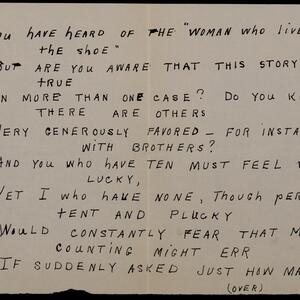 OU HAVE HEARD OF THE "WOMAN WHO LIVE
THE SHOE"
BUT ARE YOU AWARE THAT THIS STORY
TRUE
IN MORE THAN ONE CASE? DO YOU K
THERE ARE OTHERS
VERY GENEROUSLY FAVORED – FOR INSTA
WITH BROTHERS?
AND YOU WHO HAVE TEN MUST FEEL
LUCKY,
YET I WHO HAVE NONE, THOUGH PER
TENT AND PLUCKY
WOULD CONSTANTLY FEAR THAT M
COUNTING MIGHT ERR
IF SUDDENLY ASKED JUST HOW MA
(OVER)